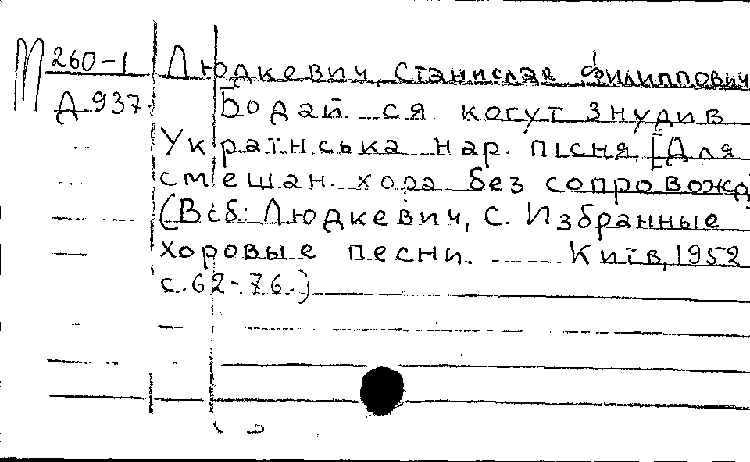 М 260-1 Людкевич, Станислав Филиппович
Д 937 Бодай ся когут знудив
Українська нар. пісня [Для
смешан. хора без сопровожд
(В сб: Людкевич, С. Избранные
хоровые песни. Київ, 1952
с. 62-76.)